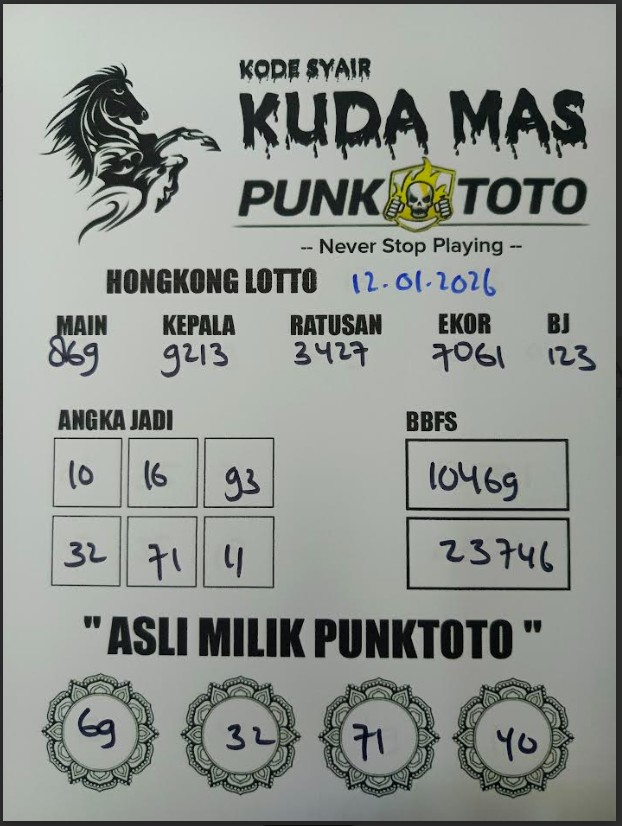 KODE SYAIR
KUDA MAS
PUNK TOTO
-- Never Stop Playing --
HONGKONG LOTTO 12.01.2026
MAIN KEPALA RATUSAN EKOR BJ
869 9213 3427 7061 123
ANGKA JADI BBFS
10 16 93 10469
32 71 11 23746
" ASLI MILIK PUNKTOTO "
69 32 71 40